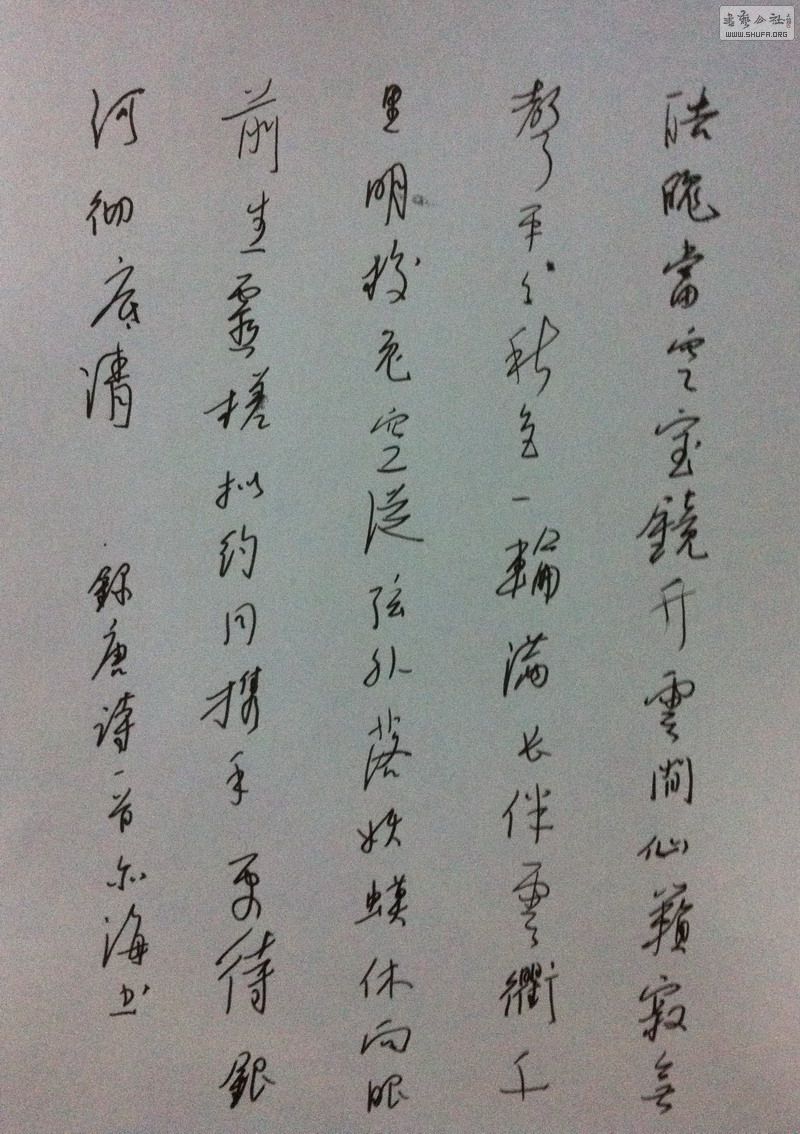 皓魄當空寶鏡升雲間仙籟寂無
聲平分秋色一輪滿長伴雲衢千
里明狡兔空從弦外落妖蟆休向眼
前生靈槎拟約同携手更待銀
河彻底清
錄唐詩一首尔海书
书艺公社
WWW.SHUFA.ORG